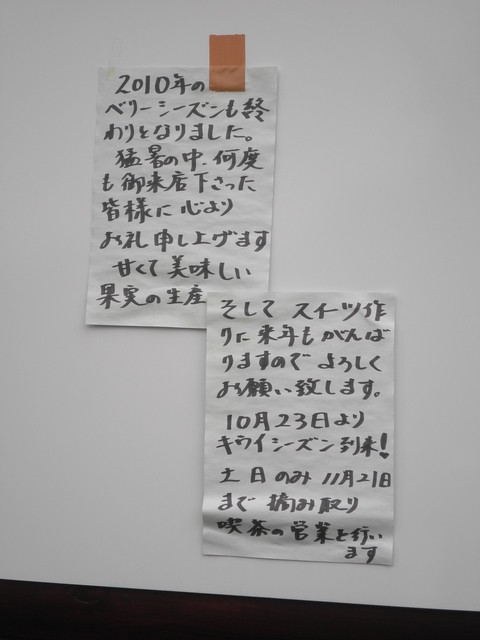 2010年の
ベリーシーズンも終
わりとなりました。
猛暑の中、何度
も御来店下さった
皆様に心より
お礼申し上げます
甘くて美味しい
果実の生産
そして スイーツ作
りに来年もがんば
りますので よろしく
お願い致します。
10月23日より
キウイシーズン到来!
土日のみ 11月21日
まで 摘み取り
喫茶の営業を行い
ます